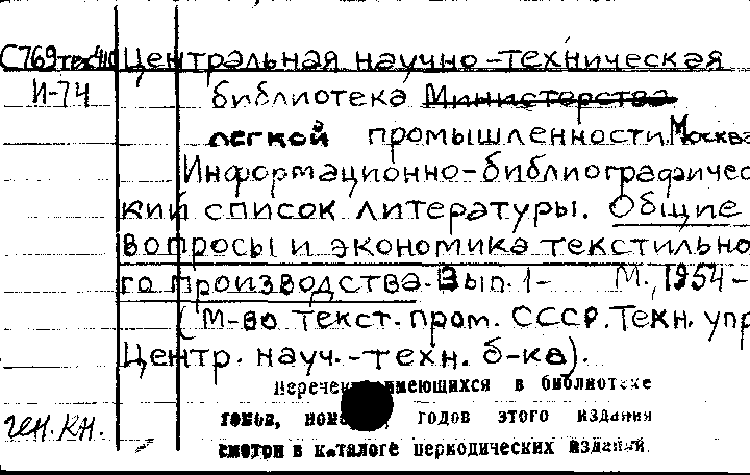 С769тех410 Центральная научно-техническая
И-74 библиотека Министерства
легкой промышленности. Москва
Информационно-библиографичес
кий список литературы. Общие
вопросы и экономика текстильно
го производства. Вып. 1- М., 1954-
(М-во текст. пром. СССР. Техн. упр
Центр. науч.-техн. б-ка).
Перечень имеющихся в библиотеке
томов, годов этого издания
смотри в каталоге периодических изданий
ген. кн.